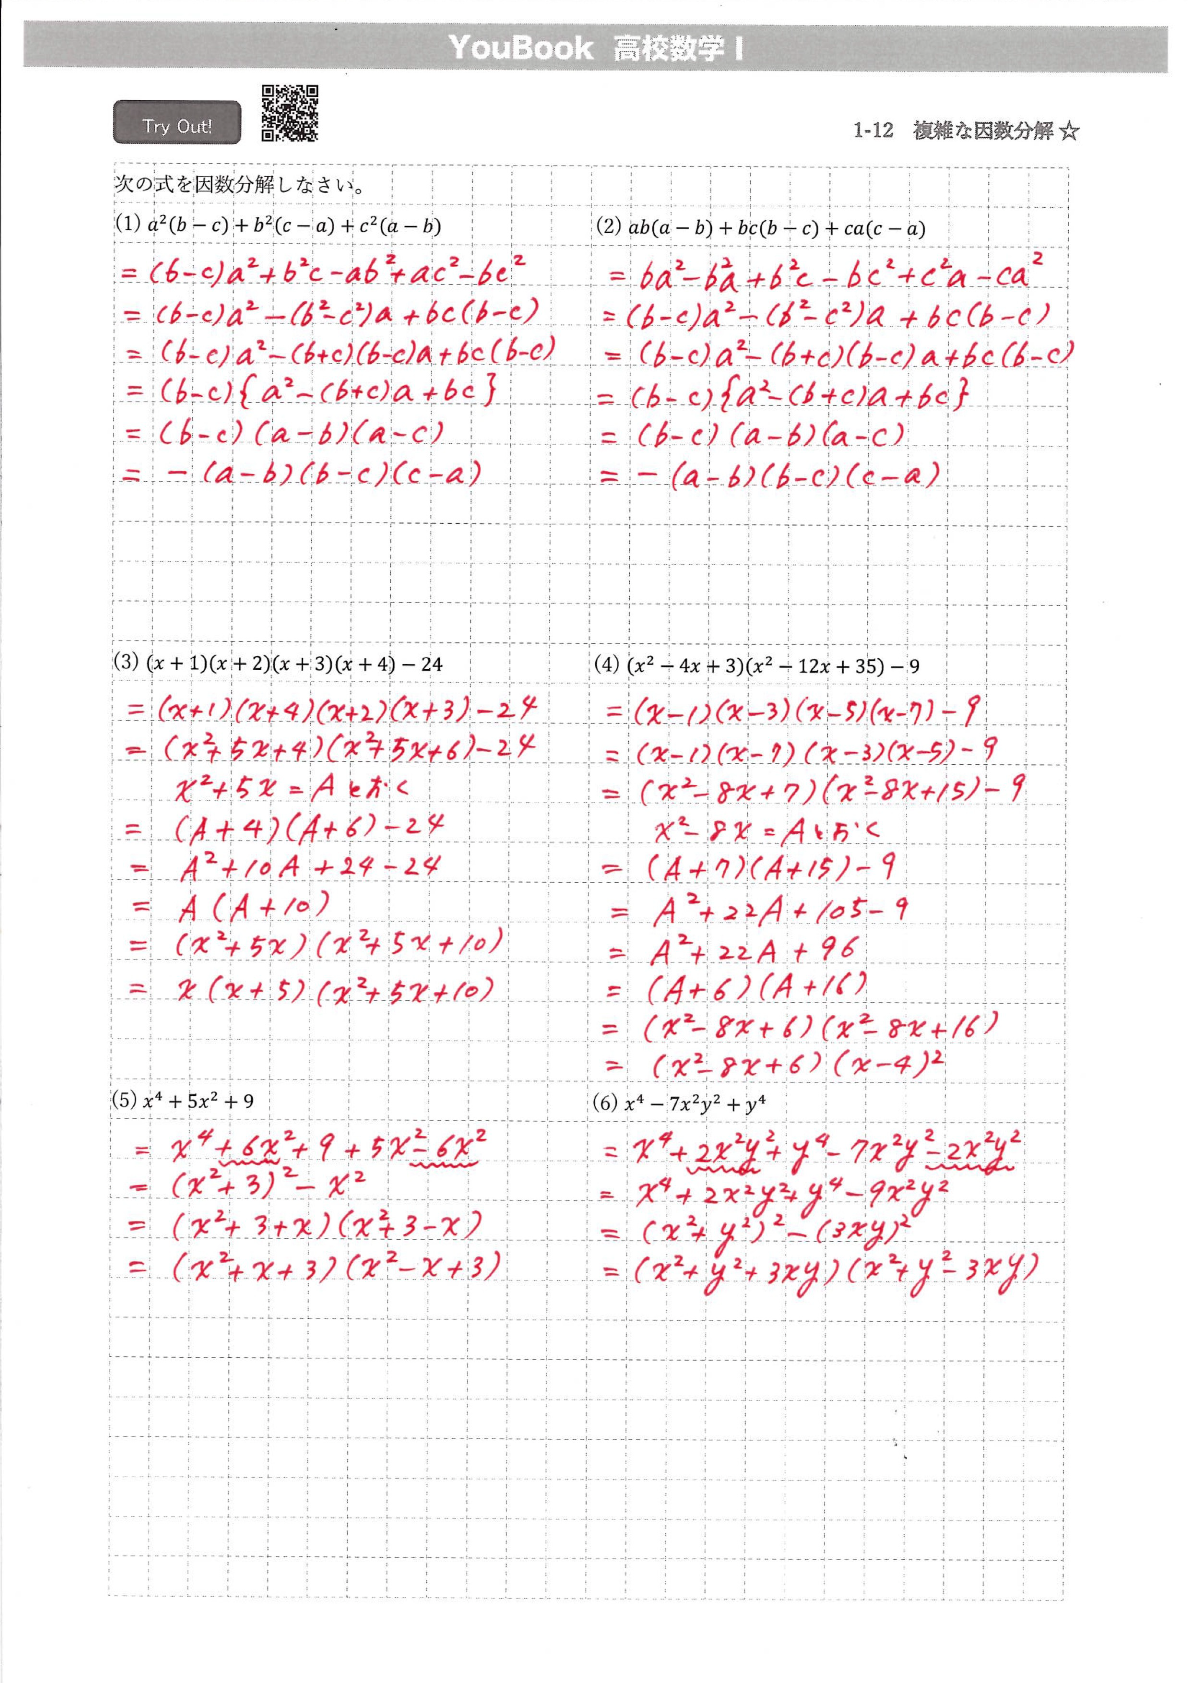 YouBook 高校数学 I
Try Out!
1-12 複雑な因数分解 ☆
次の式を因数分解しなさい。
(1) a²(b − c) + b²(c − a) + c²(a − b)
= (b−c)a² + b²c − ab² + ac² − bc²
= (b−c)a² − (b²−c²)a + bc(b−c)
= (b−c)a² − (b+c)(b−c)a + bc(b−c)
= (b−c){a² − (b+c)a + bc}
= (b−c)(a−b)(a−c)
= −(a−b)(b−c)(c−a)
(2) ab(a − b) + bc(b − c) + ca(c − a)
= ba² − b²a + b²c − bc² + c²a − ca²
= (b−c)a² − (b²−c²)a + bc(b−c)
= (b−c)a² − (b+c)(b−c)a + bc(b−c)
= (b−c){a² − (b+c)a + bc}
= (b−c)(a−b)(a−c)
= −(a−b)(b−c)(c−a)
(3) (x + 1)(x + 2)(x + 3)(x + 4) − 24
= (x+1)(x+4)(x+2)(x+3) − 24
= (x²+5x+4)(x²+5x+6) − 24
x²+5x = A とおく
= (A+4)(A+6) − 24
= A² + 10A + 24 − 24
= A(A+10)
= (x²+5x)(x²+5x+10)
= x(x+5)(x²+5x+10)
(4) (x² − 4x + 3)(x² − 12x + 35) − 9
= (x−1)(x−3)(x−5)(x−7) − 9
= (x−1)(x−7)(x−3)(x−5) − 9
= (x²−8x+7)(x²−8x+15) − 9
x²−8x = A とおく
= (A+7)(A+15) − 9
= A² + 22A + 105 − 9
= A² + 22A + 96
= (A+6)(A+16)
= (x²−8x+6)(x²−8x+16)
= (x²−8x+6)(x−4)²
(5) x⁴ + 5x² + 9
= x⁴ + 6x² + 9 + 5x² − 6x²
= (x²+3)² − x²
= (x²+3+x)(x²+3−x)
= (x²+x+3)(x²−x+3)
(6) x⁴ − 7x²y² + y⁴
= x⁴ + 2x²y² + y⁴ − 7x²y² − 2x²y²
= x⁴ + 2x²y² + y⁴ − 9x²y²
= (x²+y²)² − (3xy)²
= (x²+y²+3xy)(x²+y²−3xy)